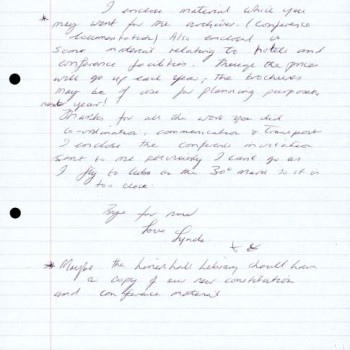 I enclose material which you
* may want for the archives. (Conference
documentation) Also enclosed is
some material relating to hotels and
conference facilities. Though the prices
will go up each year, the brochures
may be of use for planning purposes
next year!
Thanks for all the work you did
co-ordination, communication & transport
I enclose the conference invitation
sent to me personally I can't go as
I fly to Cuba on the 30th March so it is
too close.
Bye for now
Love Lynda
x x
* Maybe the Linenhall Library should have
a copy of our new constitution
and conference material